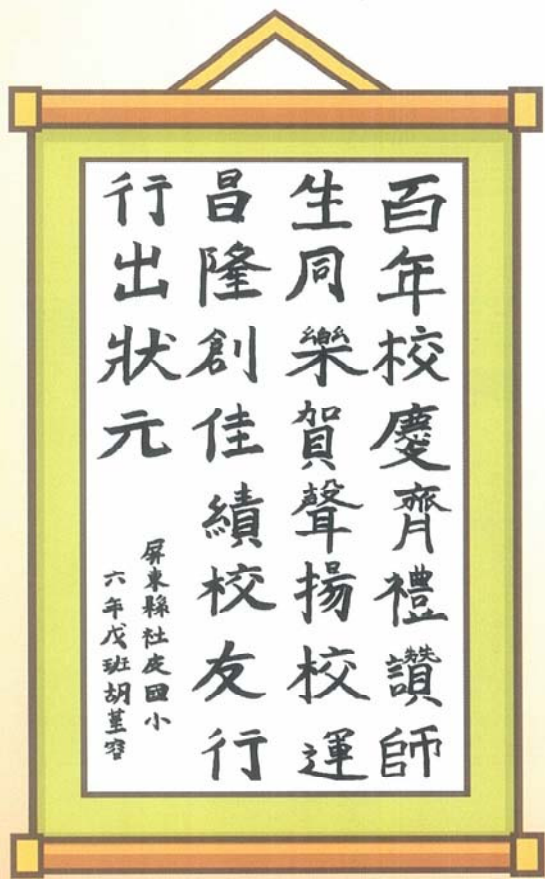 百年校慶齊禮讚師
生同樂賀聲揚校運
昌隆創佳績校友行
行出狀元
屏東縣社皮國小
六年戊班胡菫容